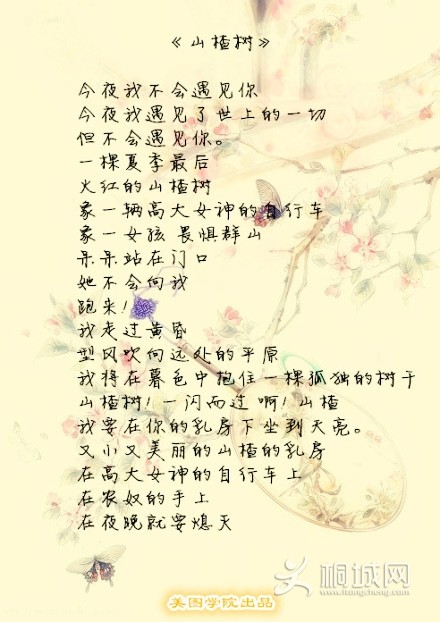 《山楂树》
今夜我不会遇见你
今夜我遇见了世上的一切
但不会遇见你。
一棵夏季最后
火红的山楂树
象一辆高大女神的自行车
象一女孩 畏惧群山
呆呆站在门口
她不会向我
跑来！
我走过黄昏
型风吹向远处的平原
我将在暮色中抱住一棵孤独的树干
山楂树！一闪而过 啊！山楂
我要在你的乳房下坐到天亮。
又小又美丽的山楂的乳房
在高大女神的自行车上
在农奴的手上
在夜晚就要熄灭
美图学院出品
桐城网